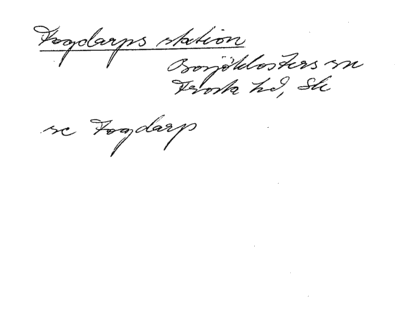 Fogdarps station
Bosjöklosters sn
Frosta hd, Sk
se Fogdarp